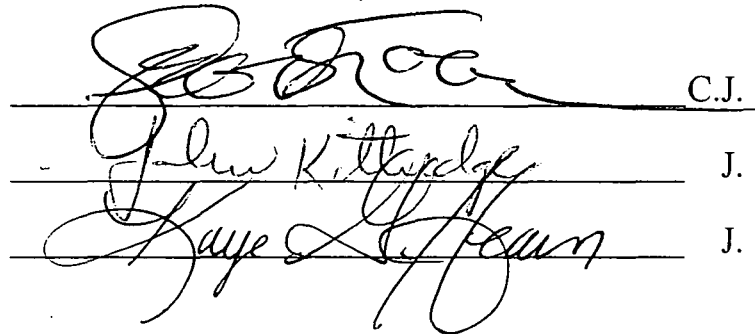 C.J.
John Kittredge J.
Kaye G. Hearn J.